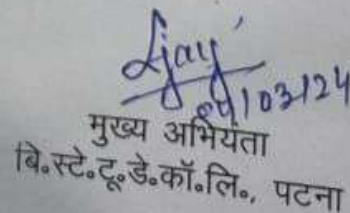 Ajay
04/03/124
मुख्य अभियंता
बि॰स्टे॰टू॰डे॰कॉ॰लि॰, पटना